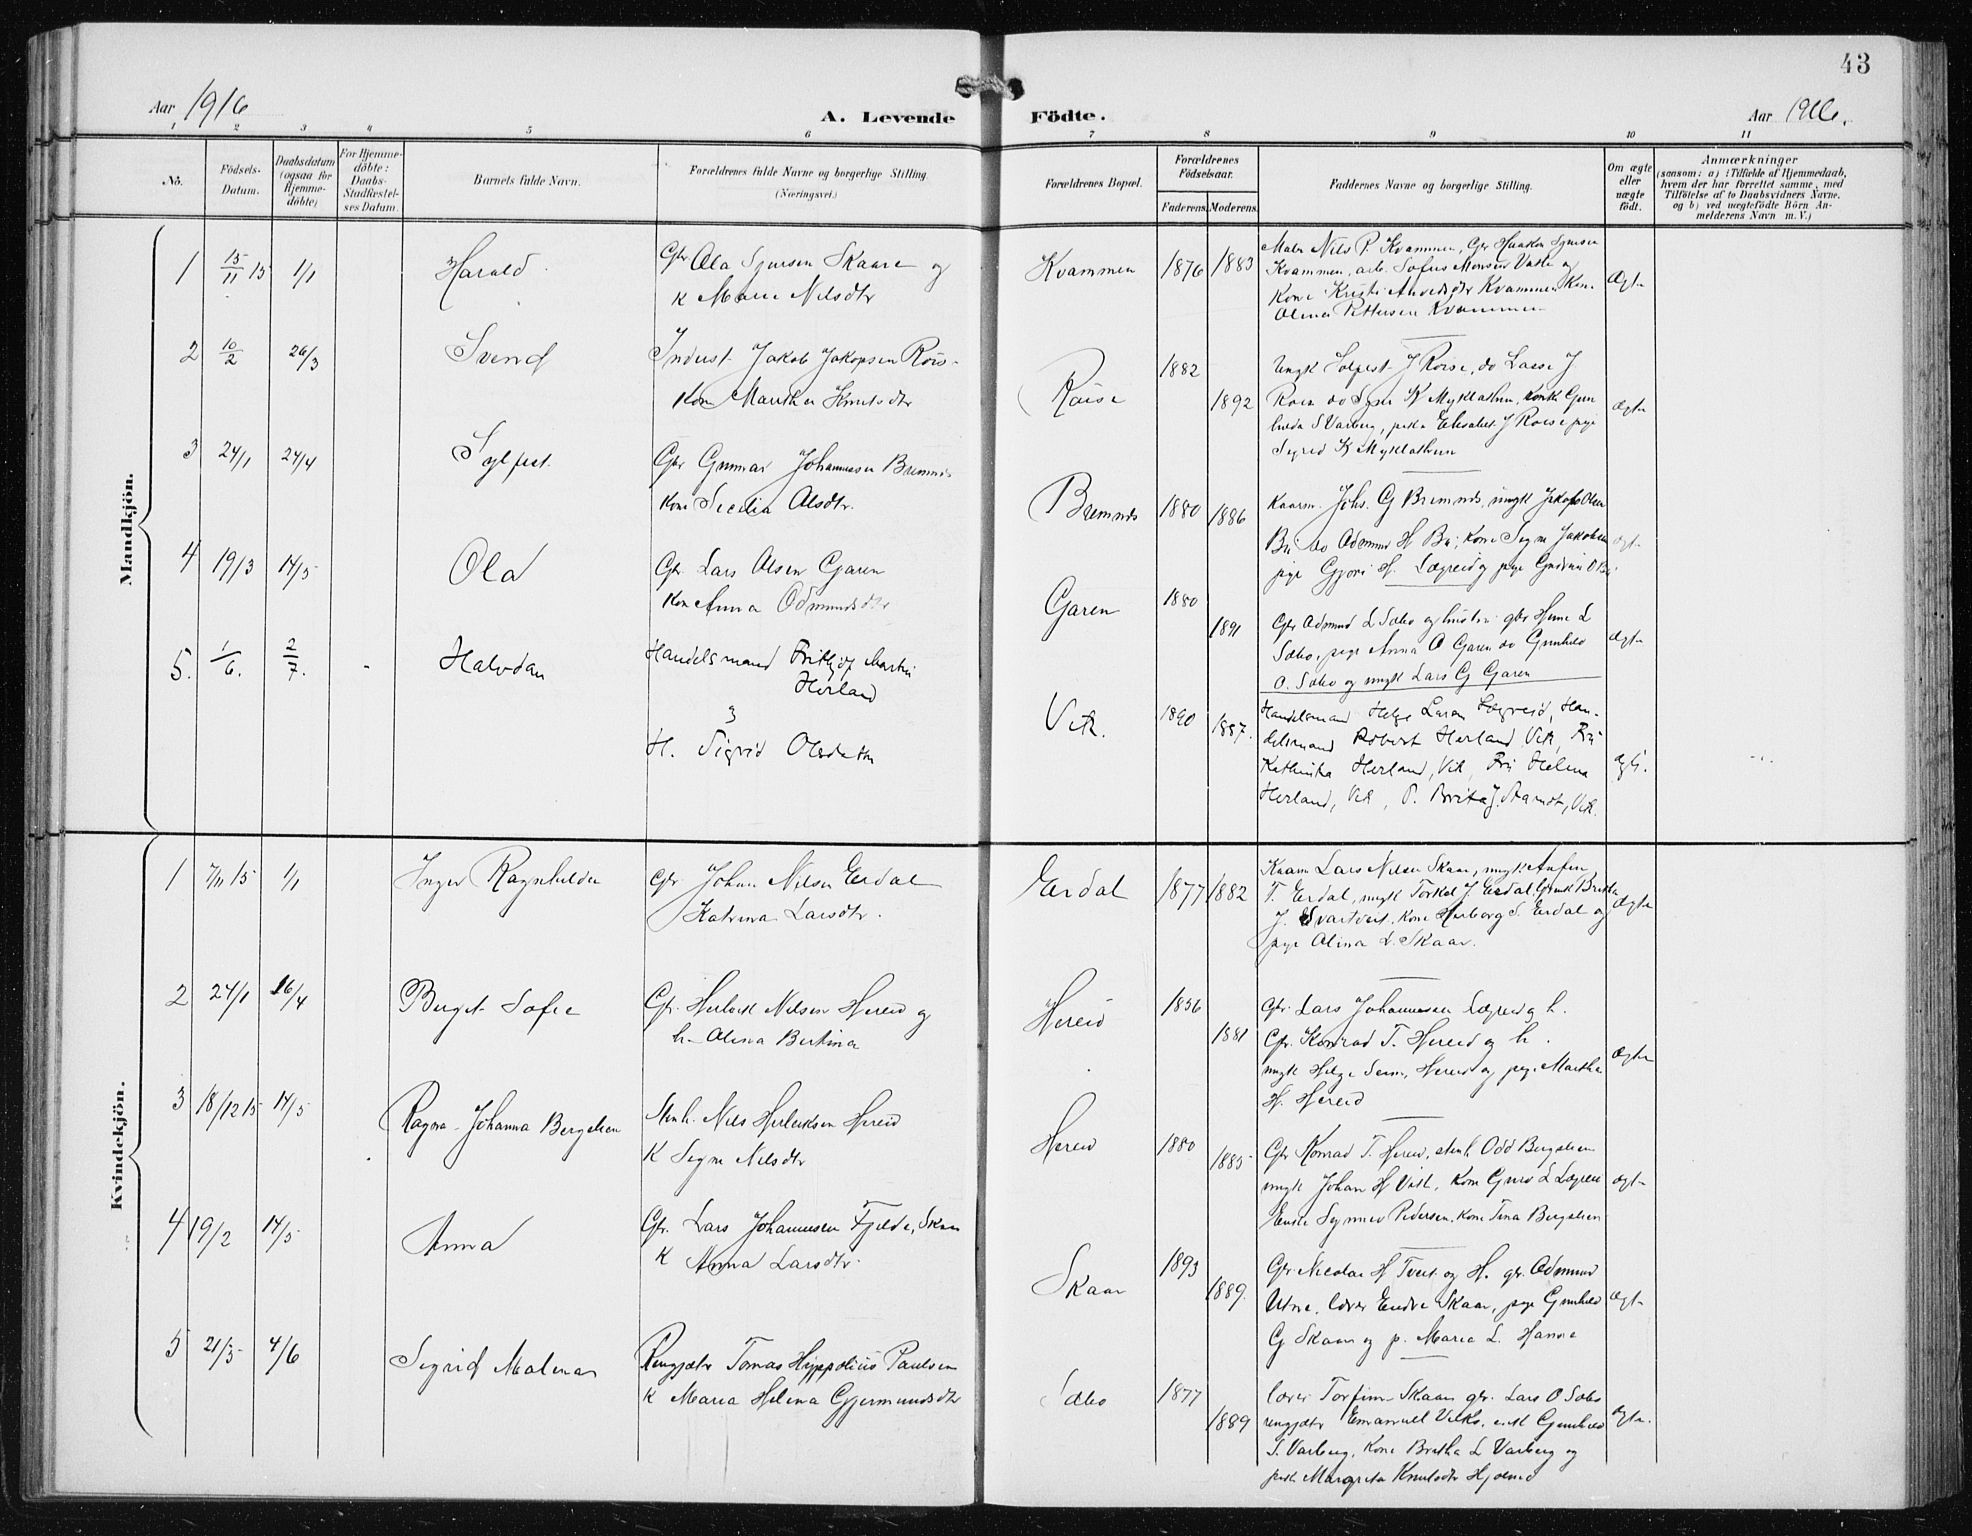 43
Aar 1916
A. Levende
Födte.
Aar 1916.
1 2 3 4 5 6 7 8 9 10 11
No.
Födsels-
Datum.
Daabsdatum
(ogsaa for
Hjemme-
döbte)
For Hjemme-
döbte:
Daabs-
Stadfæstel-
ses Datum.
Barnets fulde Navn.
Forældrenes fulde Navne og borgerlige Stilling.
(Næringsvei.)
Forældrenes Bopæl.
Forældrenes
Födselsaar.
Faderens. Moderens.
Faddernes Navne og borgerlige Stilling.
Om ægte
eller
uægte
födt.
Anmærkninger
(saasom: a) i Tilfælde af Hjemmedaab,
hvem der har forrettet samme, med
Tilföielse af to Daabsvidners Navne.
og b) ved uægtefödte Börn An-
melderens Navn m. V.)
Mandkjön.
1 15/11 15 1/1 Harald
Gbr Ola Sjursen Skaare og
K Marie Nilsdtr
Kvammen 1876 1883
Maler Nils P. Kvammen, Gbr Haakon Sjursen
Kvammen, arb. Sofus Monsen Vatle og
Kone Kristi Kvammen, Kone
Olina Pettersen Kvammen
Ægte
2 10/2 26/3 Svend
Indust. Jakob Jakopsen Röis-
Kone Martha Knutsdtr
Röise 1882 1892
Ungk Solfest J Roise, do Lasse J
Roise do K Myklathun,
S Varberg, Elisabet J Roise pige
Sigrid K Myklathun
ægte
3 24/1 24/4 Sylfest.
Gbr Gunnar Johannessen Bremnes
Kone Secilia Olsdtr.
Bremnes 1880 1886
Kaarm. Johs. G Bremnes, ungk Jakob Olsen
Bu do Odmund H Bu, Kone Jakobsen
pige Gjori H. Lægreid og pige Gudrun O Bu.
ægte
4 19/3 14/5 Ola
Gbr. Lars Olsen Garen
Kone Anna Odmundsdtr
Garen 1880 1891
Gbr Odmund L Sæbo og hustru gbr L
Sæbo, pige Anna O Garen do Gunhild
O. Sæbo og ungk Lars G Garen
ægte
5. 1/6. 2/7. - Halvdan
Handelsmand Frithjof Martin
Herland
H. Sigrid Olsdatter
Vik. 1890 1887.
Handelsmand Helge Larsen Lægreid, Han-
delsmand Robert Herland, Vik, Fru
Kathinka Herland, Vik, Fru Helena
Herland, Vik, P. Brita J. Vik.
ægte.
Kvindekjön.
1 7/11 15 1/1 Inger Ragnhilda
Gbr. Johan Nilsen Erdal
Katrina Larsdtr.
Erdal 1877 1882
Kaarm Lars Nilsen Skaar, ungk
T. Erdal, ungk Torkel J Erdal,
J. Svartveit. Kone Herborg S. Erdal og
pige Olina L. Skaar.
Ægte
2 24/1 16/4 Berget Sofie
Gbr. Herleik Nilsen Hereid og
h. Olina Bertina
Hereid 1856 1881
Gbr. Lars Johannessen Lægreid og h.
Gbr. Konrad T. Hereid og h.
ungk Helge Hereid og pige Martha
H. Hereid
ægte
3 18/12 15 14/5 Ragna Johanna Bergelien
Stenh. Nils Herleiksen Hereid
K Signe Nilsdtr
Hereid 1880 1885
Gbr Konrad T. Hereid, stenh. Odd Bergelien
ungk Johan H Vatle, Kone Guro L Lægreid
Enke Synneva Pedersen, Kone Tina Bergelien
ægte
4 19/2 14/5 Anna
Gbr. Lars Johannessen Fjelde, Skaar
K Anna Larsdtr.
Skaar 1893 1889.
Gbr Nicolai H Tveit og H. gbr. Odmund
Utne, lærer Endre Skaar, pige Gunhild
G Skaar og p. Maria L. Hanne
ægte
5 21/3 4/6 Sigrid Malena
Rengjætr Tomas Hippolius Paulsen
K Maria Helena Gjermundsdtr
Sæbo 1877 1889
Lærer Torfinn Skaar gbr. Lars O Sæbo
rengjætr Emanuel Gunhild
S. Varberg, Kone Bretha L Varberg og
Margreta Knutsdtr Hjolmo
ægte.